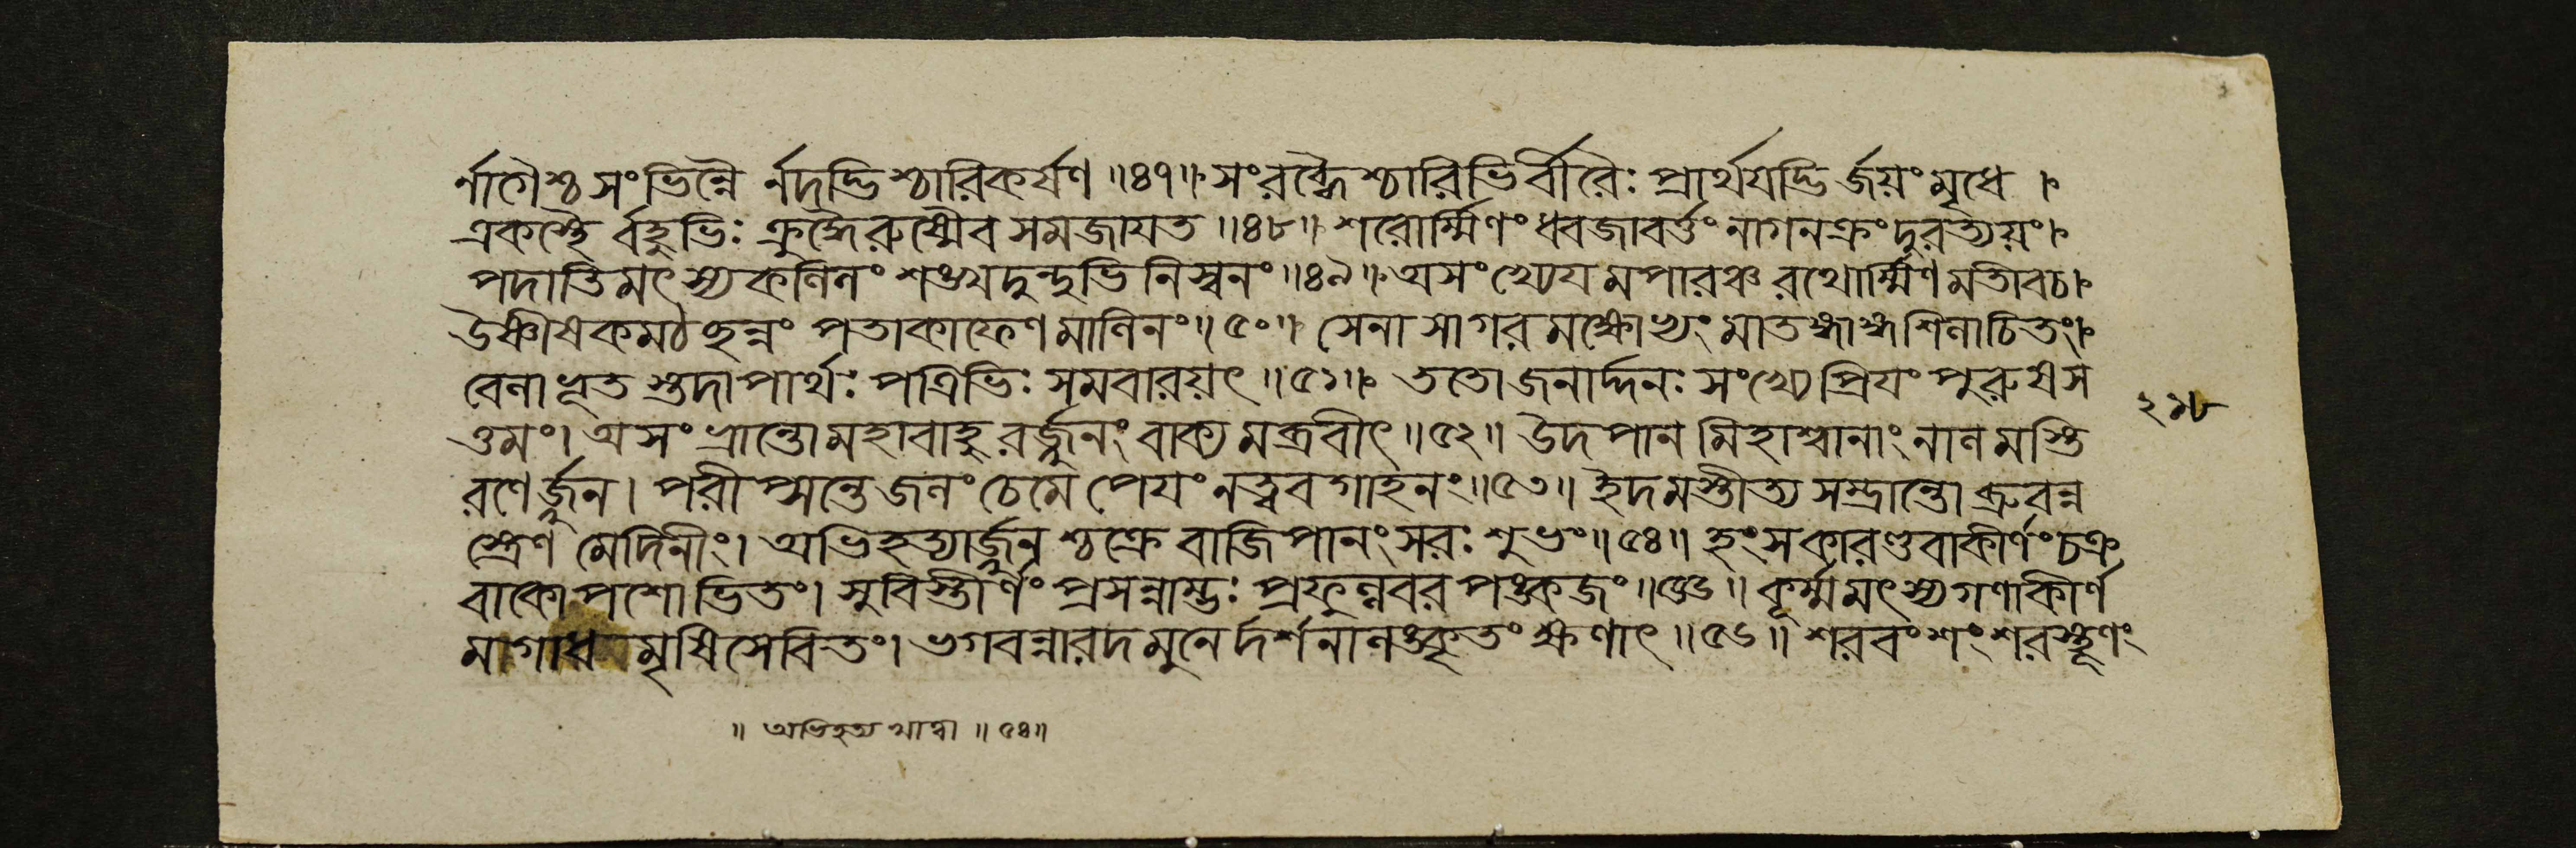 র্নাগৈশ্চ সংভিন্নৈ র্নদদ্ভিশ্চারিকর্ষণ ॥৪৭॥ সংরব্ধৈশ্চারিভির্বীরৈঃ প্রার্থযদ্ভির্জয়ং মৃধে ।
একস্থৈ র্বহুভিঃ ক্রুদ্ধৈরুষ্মৈব সমজাযত ॥৪৮॥ শরোর্ম্মিণং ধ্বজাবর্ত্তং নাগনক্রং দুরত্যয়ং।
পদাতিমৎস্যকলিলং শঙ্খদুন্দুভিনিস্বনং ॥৪৯॥ অসংখ্যেযমপারঞ্চ রথোর্ম্মিণমতীবচ।
উষ্ণীষকমঠছন্নং পতাকাফেণমালিনং ॥৫০॥ সেনাসাগরমক্ষোভ্যং মাতঙ্গাঙ্গশিলাচিতং।
বেলাভূতস্তদা পার্থঃ পত্রিভিঃ সমবারয়ৎ ॥৫১॥ ততো জনার্দ্দনঃ সংখ্যে প্রিযং পুরুষস
ত্তমং। অসংভ্রান্তো মহাবাহুরর্জ্জুনং বাক্যমব্রবীৎ ॥৫২॥ উদপানমিহাশ্বানাং নালমস্তি
রণের্জ্জুন। পরীপ্সন্তে জলং চেমে পেযং নত্ববগাহনং ॥৫৩॥ ইদমস্তীত্যসম্ভ্রান্তো ব্রুবন্ন
স্ত্রেণ মেদিনীং। অভিহত্যার্জ্জুনশ্চক্রে বাজিপানং সরঃ শুভং ॥৫৪॥ হংসকারণ্ডবাকীর্ণং চক্র
বাকোপশোভিতং। সুবিস্তীর্ণং প্রসন্নাম্ভঃ প্রফুল্লবরপঙ্কজং ॥৫৫॥ কূর্ম্মমৎস্যগণাকীর্ণ
মাগাধমৃষিসেবিতং। ভগবন্নারদমুনের্দর্শনালঙ্কৃতং ক্ষণাৎ ॥৫৬॥ শরবংশং শরস্থূণং
২১৮
॥ অভিহত্য খাত্বা ॥ ৫৪॥